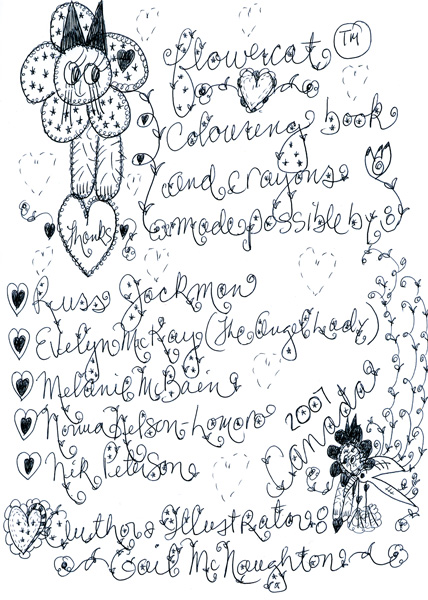 flowercat TM
Colouring book
and crayons
Thanks
made possible by
Russ Jackmon
Evelyn McKay (The Angel Lady)
Melanie McBain
Norma Nelson-homon
Nik Peterson
2007
Canada
author & Illustrator
Gail McNaughton